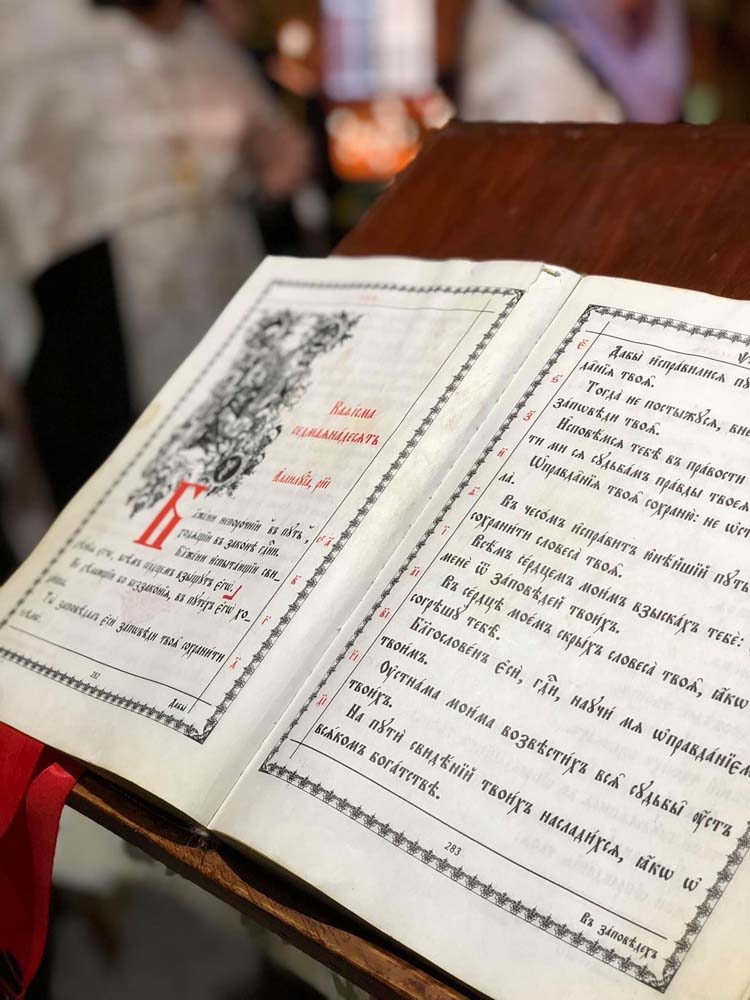 Каѳі́сма
седмаѧна́десѧть
А҆ллилꙋ́їа, ри҃і
Бл҃же́ни непоро́чнїи въ пꙋ́ть,
ходѧ́щїи въ зако́нѣ гдⷭ҇ни. а҃
Бл҃же́ни и҆спыта́ющїи сви-
дѣ̑нїѧ є҆гѡ̀, всѣ́мъ се́рдцемъ взы́щꙋтъ є҆го̀. в҃
Не дѣ́лающїи бо беззако́нїѧ, въ пꙋте́хъ є҆гѡ̀ хо-
ди́ша. г҃
Ты̀ заповѣ́далъ є҆сѝ за́пѡвѣди твоѧ̑ сохрани́ти
ѕѣлѡ̀. д҃
282
Дабы̀
є҃ Дабы̀ и҆спра́вилисѧ пꙋ
да̑нїѧ твоѧ̑.
ѕ҃ Тогда̀ не постыжꙋ́сѧ, вне
за́пѡвѣди твоѧ̑.
з҃ И҆сповѣ́мсѧ тебѣ̀ въ пра́вости
ти ми сѧ сꙋдьба́мъ пра́вды твоеѧ̀
и҃ Ѡ҆правда̑нїѧ твоѧ̑ сохраню̀: не ѡ҆ст
ла̀.
ѳ҃ Въ чесо́мъ и҆спра́витъ ю҆нѣ́йшїй пꙋ́ть
сохрани́ти словеса̀ твоѧ̑.
і҃ Всѣ́мъ се́рдцемъ мои́мъ взыска́хъ тебѐ:
менѐ ѿ за́повѣдей твои́хъ.
а҃і Въ се́рдцѣ мое́мъ скры́хъ словеса̀ твоѧ̑, ꙗ҆́кѡ
согрѣшꙋ̀ тебѣ̀.
в҃і Благослове́нъ є҆сѝ, гдⷭ҇и, наꙋчи́ мѧ ѡ҆правда́нїєм
твои̑мъ.
г҃і Оу҆стна́ма мои́ма возвѣсти́хъ всѧ̑ сꙋдьбы̀ ѹ҆́стъ
твои́хъ.
д҃і На пꙋтѝ свидѣ́нїй твои́хъ наслади́хсѧ, ꙗ҆́кѡ ѡ҆
всѧ́комъ бога́тствѣ.
283
Въ за́повѣдехъ